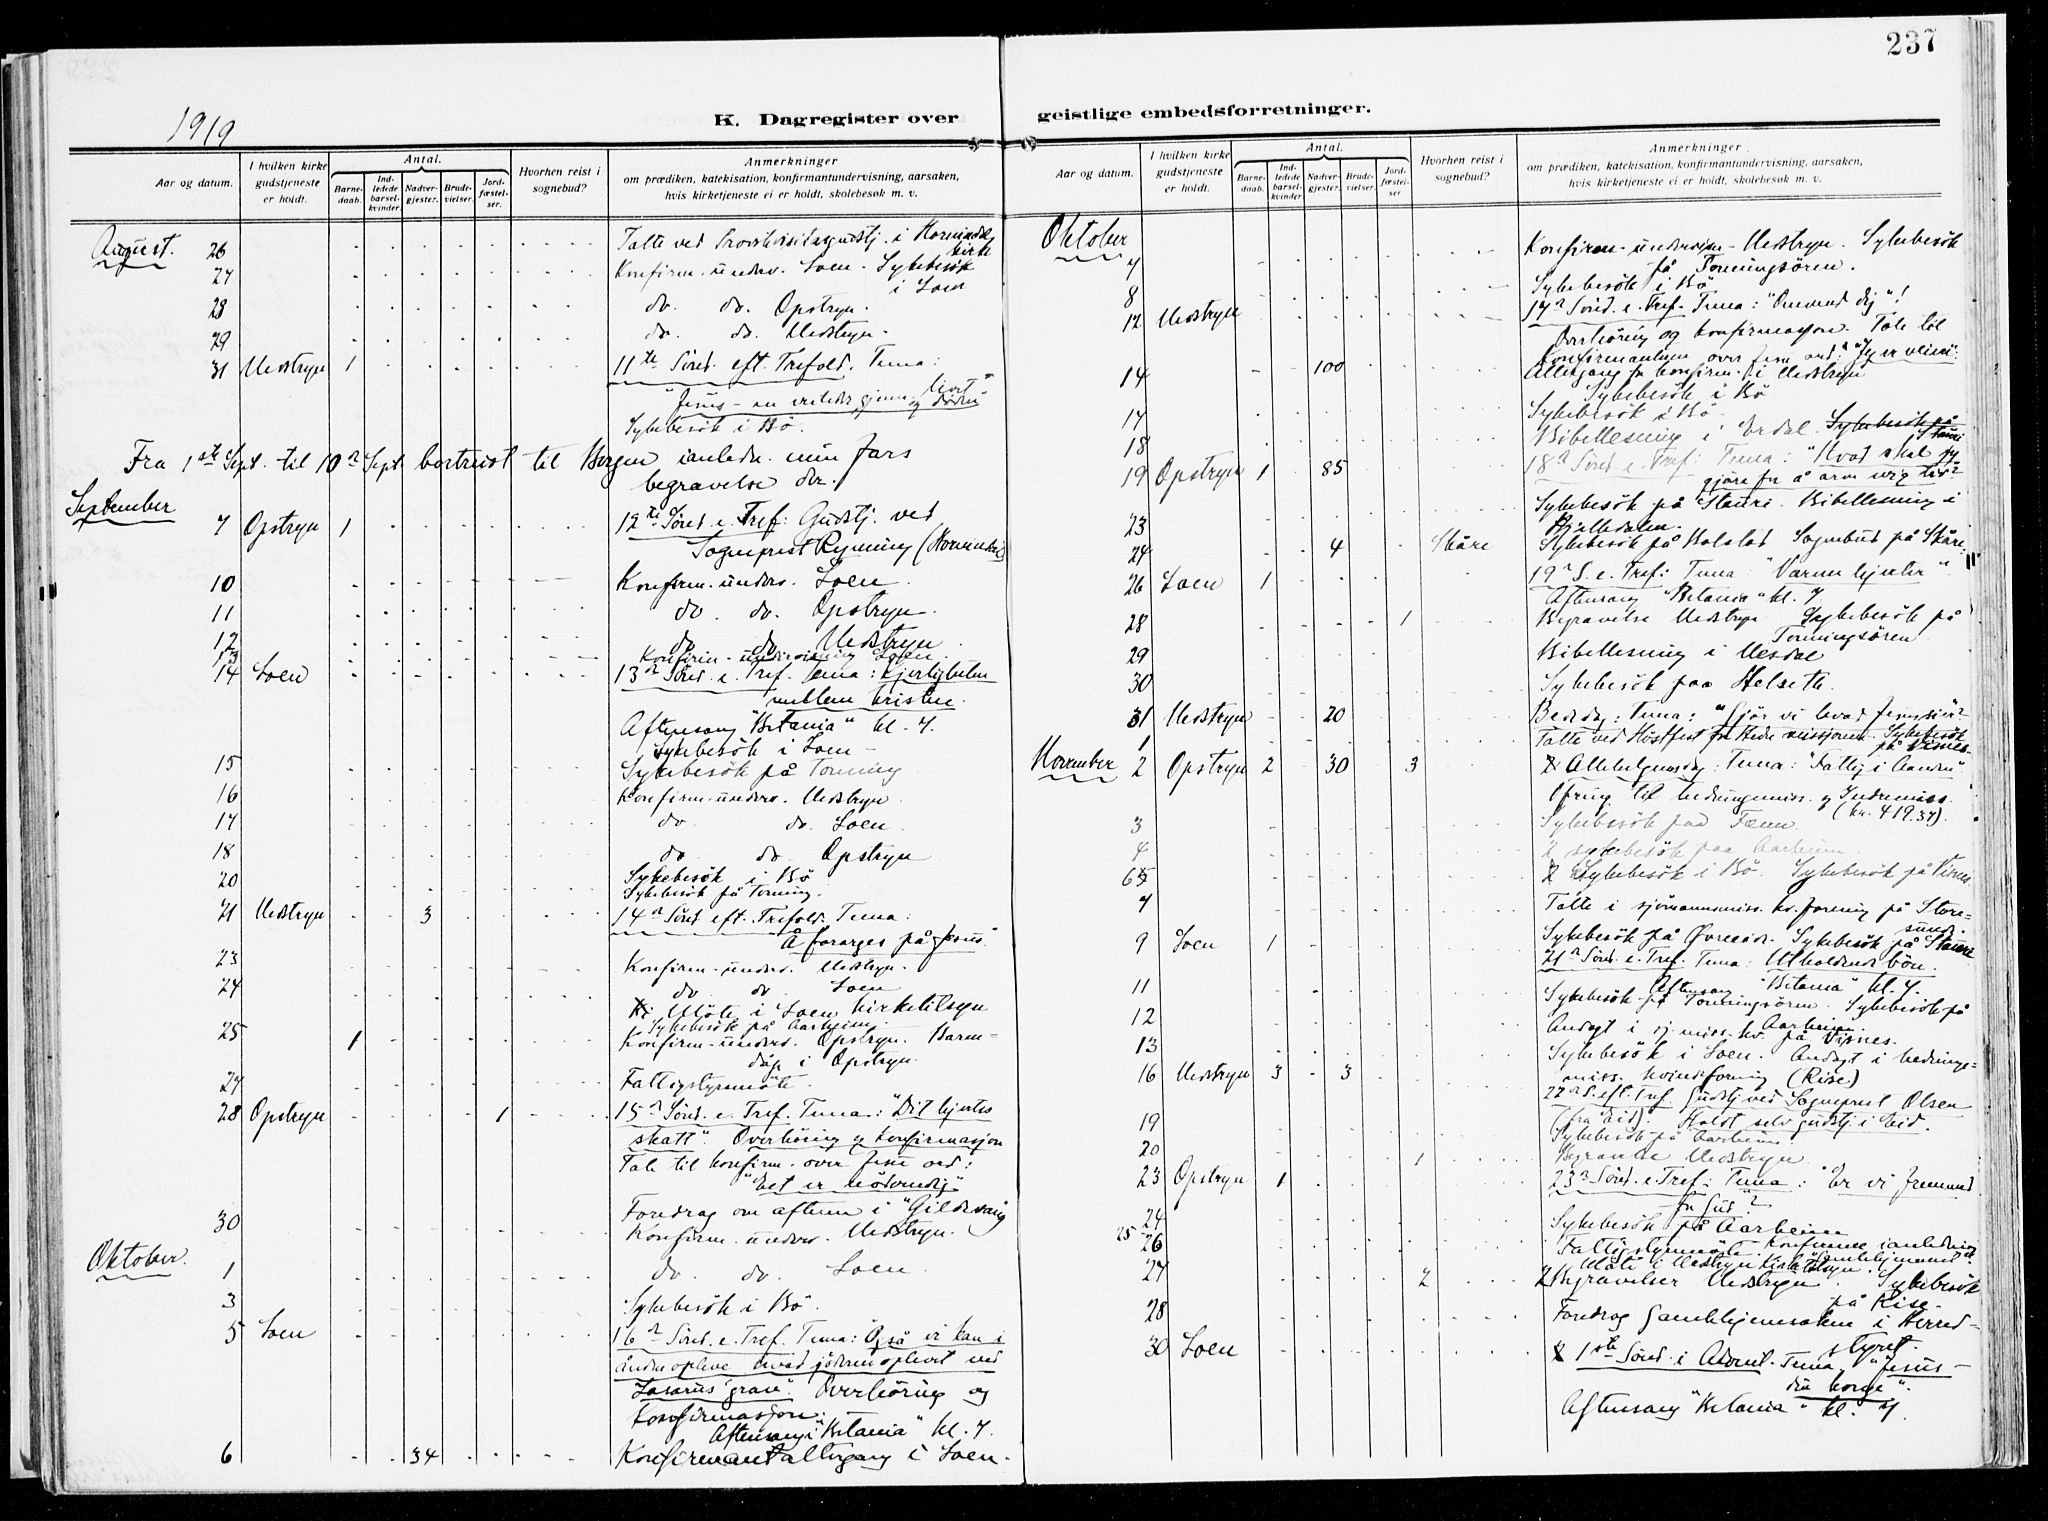 237
1919
K. Dagregister over geistlige embedsforretninger.
Aar og datum.
I hvilken kirke gudstjeneste er holdt.
Antal.
Barnedaab.
Indledede barselkvinder.
Nadvergjester.
Brudevielser.
Jordfæstelser.
Hvorhen reist i sognebud?
Anmerkninger
om prædiken, katekisation, konfirmantundervisning, aarsaken,
hvis kirketjeneste ei er holdt, skolebesøk m. v.
August. 26 Talte ved Provstivisitasgudstj. i Hornindal kirke
27 Konfirm.-underv. Loen. Sykebesök i Loen
28 do do. Opstryn.
29 do. do. Nedstryn.
31 Nedstryn 1 11te Sönd. eft. Trefold. Tema:
"Jesus – en veileder gjenn. livet og döden"
Sykebesök i Bö.
Fra 1ste Sept. til 10n Sept. bortreist til Bergen i anledn. min fars
begravelse der.
September
7 Opstryn 1 12te Sönd. e. Tref: Gudstj. ved
Sogneprest Rynning (Hornindal)
10 Konfirm.-underv. Loen.
11 do. do. Opstryn.
12 do do Nedstryn
13 Konfirm-undervisning Loen.
14 Loen 13n Sönd. e. Tref. Tema: Kjerligheten
mellem kristne.
Aftensang "Betania" kl. 7.
Sykebesök i Loen –
15 Sykebesök på Tonning
16 Konfirm.-underv. Nedstryn.
17 do do. Loen.
18 do do. Opstryn
20 Sykebesök i Bö
Sykebesök på Tonning.
21 Nedstryn 3 14n Sönd. eft. Trefold. Tema:
Å forarges på Jesus"
23 Konfirm.-underv. Nedstryn.
24 do do Loen
Möte i Loen kirketilsyn
Sykebesök på Aarheim.
25 1 Konfirm-underv. Opstryn. Barnedåp i Opstryn.
27 Fattigstyremöte.
28 Opstryn 1 15n Sönd. e. Tref. Tema: "Dit hjertes
skatt". Overhöring og konfirmasjon
Tale til konfirm. over Jesu ord:
"Eet er nödvendig"
Foredrag om aftenen i "Gildevang
30 Konfirm. underv. Nedstryn.
Oktober.
1 do. do. Loen.
3 Sykebesök i Bö.
5 Loen 16n Sönd. e. Tref. Tema: Også vi kan i
ånden opleve hvad jöderne oplevet ved
Lasarus' grav". Overhöring og
konfirmasjon.
Aftensang i "Betania" kl. 7.
6 34 Konfirmantaltergang i Loen.
Aar og datum.
I hvilken kirke gudstjeneste er holdt.
Antal.
Barnedaab.
Indledede barselkvinder.
Nadvergjester.
Brudevielser.
Jordfæstelser.
Hvorhen reist i sognebud?
Anmerkninger
om prædiken, katekisation, konfirmantundervisning, aarsaken,
hvis kirketjeneste ei er holdt, skolebesøk m. v.
Oktober
7 Konfirm-undervisn. Nedstryn. Sykebesök
på Tonningsören.
8 Sykebesök i Bö
12 Nedstryn 17n Sönd. e. Tref. Tema: "Omvend dig"!
Overhöring og konfirmasjon. Tale til
Konfirmantene over Jesu ord:
14 100 Altergang for konfirm. i Nedstryn
Sykebesök i Bö
17 Sykebesök i Bö.
18 Bibellesning i Erdal. Sykebesök på Stauri
19 Opstryn 1 85 18n Sönd. e. Tref: Tema: "Hvad skal jeg
gjöre for å arve evig liv?
23 Sykebesök på Stauri. Bibellesning i
Hjelledalen.
24 4 Skåre Sykebesök på Bolstad Sognebud på Skåre.
26 Loen 1 19n S. e. Tref: Tema: "Varme hjerter"
Aftensang "Betania" kl. 7
28 1 Begravelse Nedstryn Sykebesök på
Tonningsören
29 Bibellesning i Nesdal
30 Sykebesök paa Helseth.
31 Nedstryn 20 Bededag: Tema: "Gjör vi hvad Jesus sier?
1 Talte ved Höstfest for Hedn. missjonen. Sykebesök
på Visnes.
November 2 Opstryn 2 30 3 Allehelgensdag: Tema: "Fattig i Aanden".
Ofring til hedningemiss. og Indremiss.
(kr. 419.37).
3 Sykebesök paa
4 2 sykebesök paa Aarheim.
65 Sykebesök i Bö. Sykebesök på Visnes
7 Talte i sjömannsmiss. kv.forening på Storesund.
Sykebesök på Övreeide. Sykebesök på Stauri
9 Loen 1 21n Sönd. e. Tref. Tema: Utholdende bön.
Aftensang "Betania" kl. 7.
11 Sykebesök på Tonningsören. Sykebesök på
Aarheim
12 Andagt i sj.miss.kv. på Visnes.
13 Sykebesök i Loen. Andagt i hedningemiss. kvindeforening (Rise)
16 Nedstryn 3 3 22n S. eft. Tref. Gudstj. ved Sogneprest Olsen
(fra Eid). Holdt selv gudstj. i Eid.
19 Sykebesök på Aarheim
20 1 Begravelse Nedstryn
23 Opstryn 1 23n Sönd. e. Tref: Tema: "Er vi fremmed
for Gud"?
24 Sykebesök på Aarheim
25
26 Fattigstyremöte. Konferanse i anledning Gamlehjemmet.
Möte i Nedstryn Kirketilsyn.
27 2 2 Begravelser Nedstryn. Sykebesök
på Rise.
28 Foredrag Gamlehjemsaken i Herredstyret.
30 Loen 1ste Sönd. i Advent. Tema "Jesus –
din konge".
Aftensang "Betania" kl. 7.